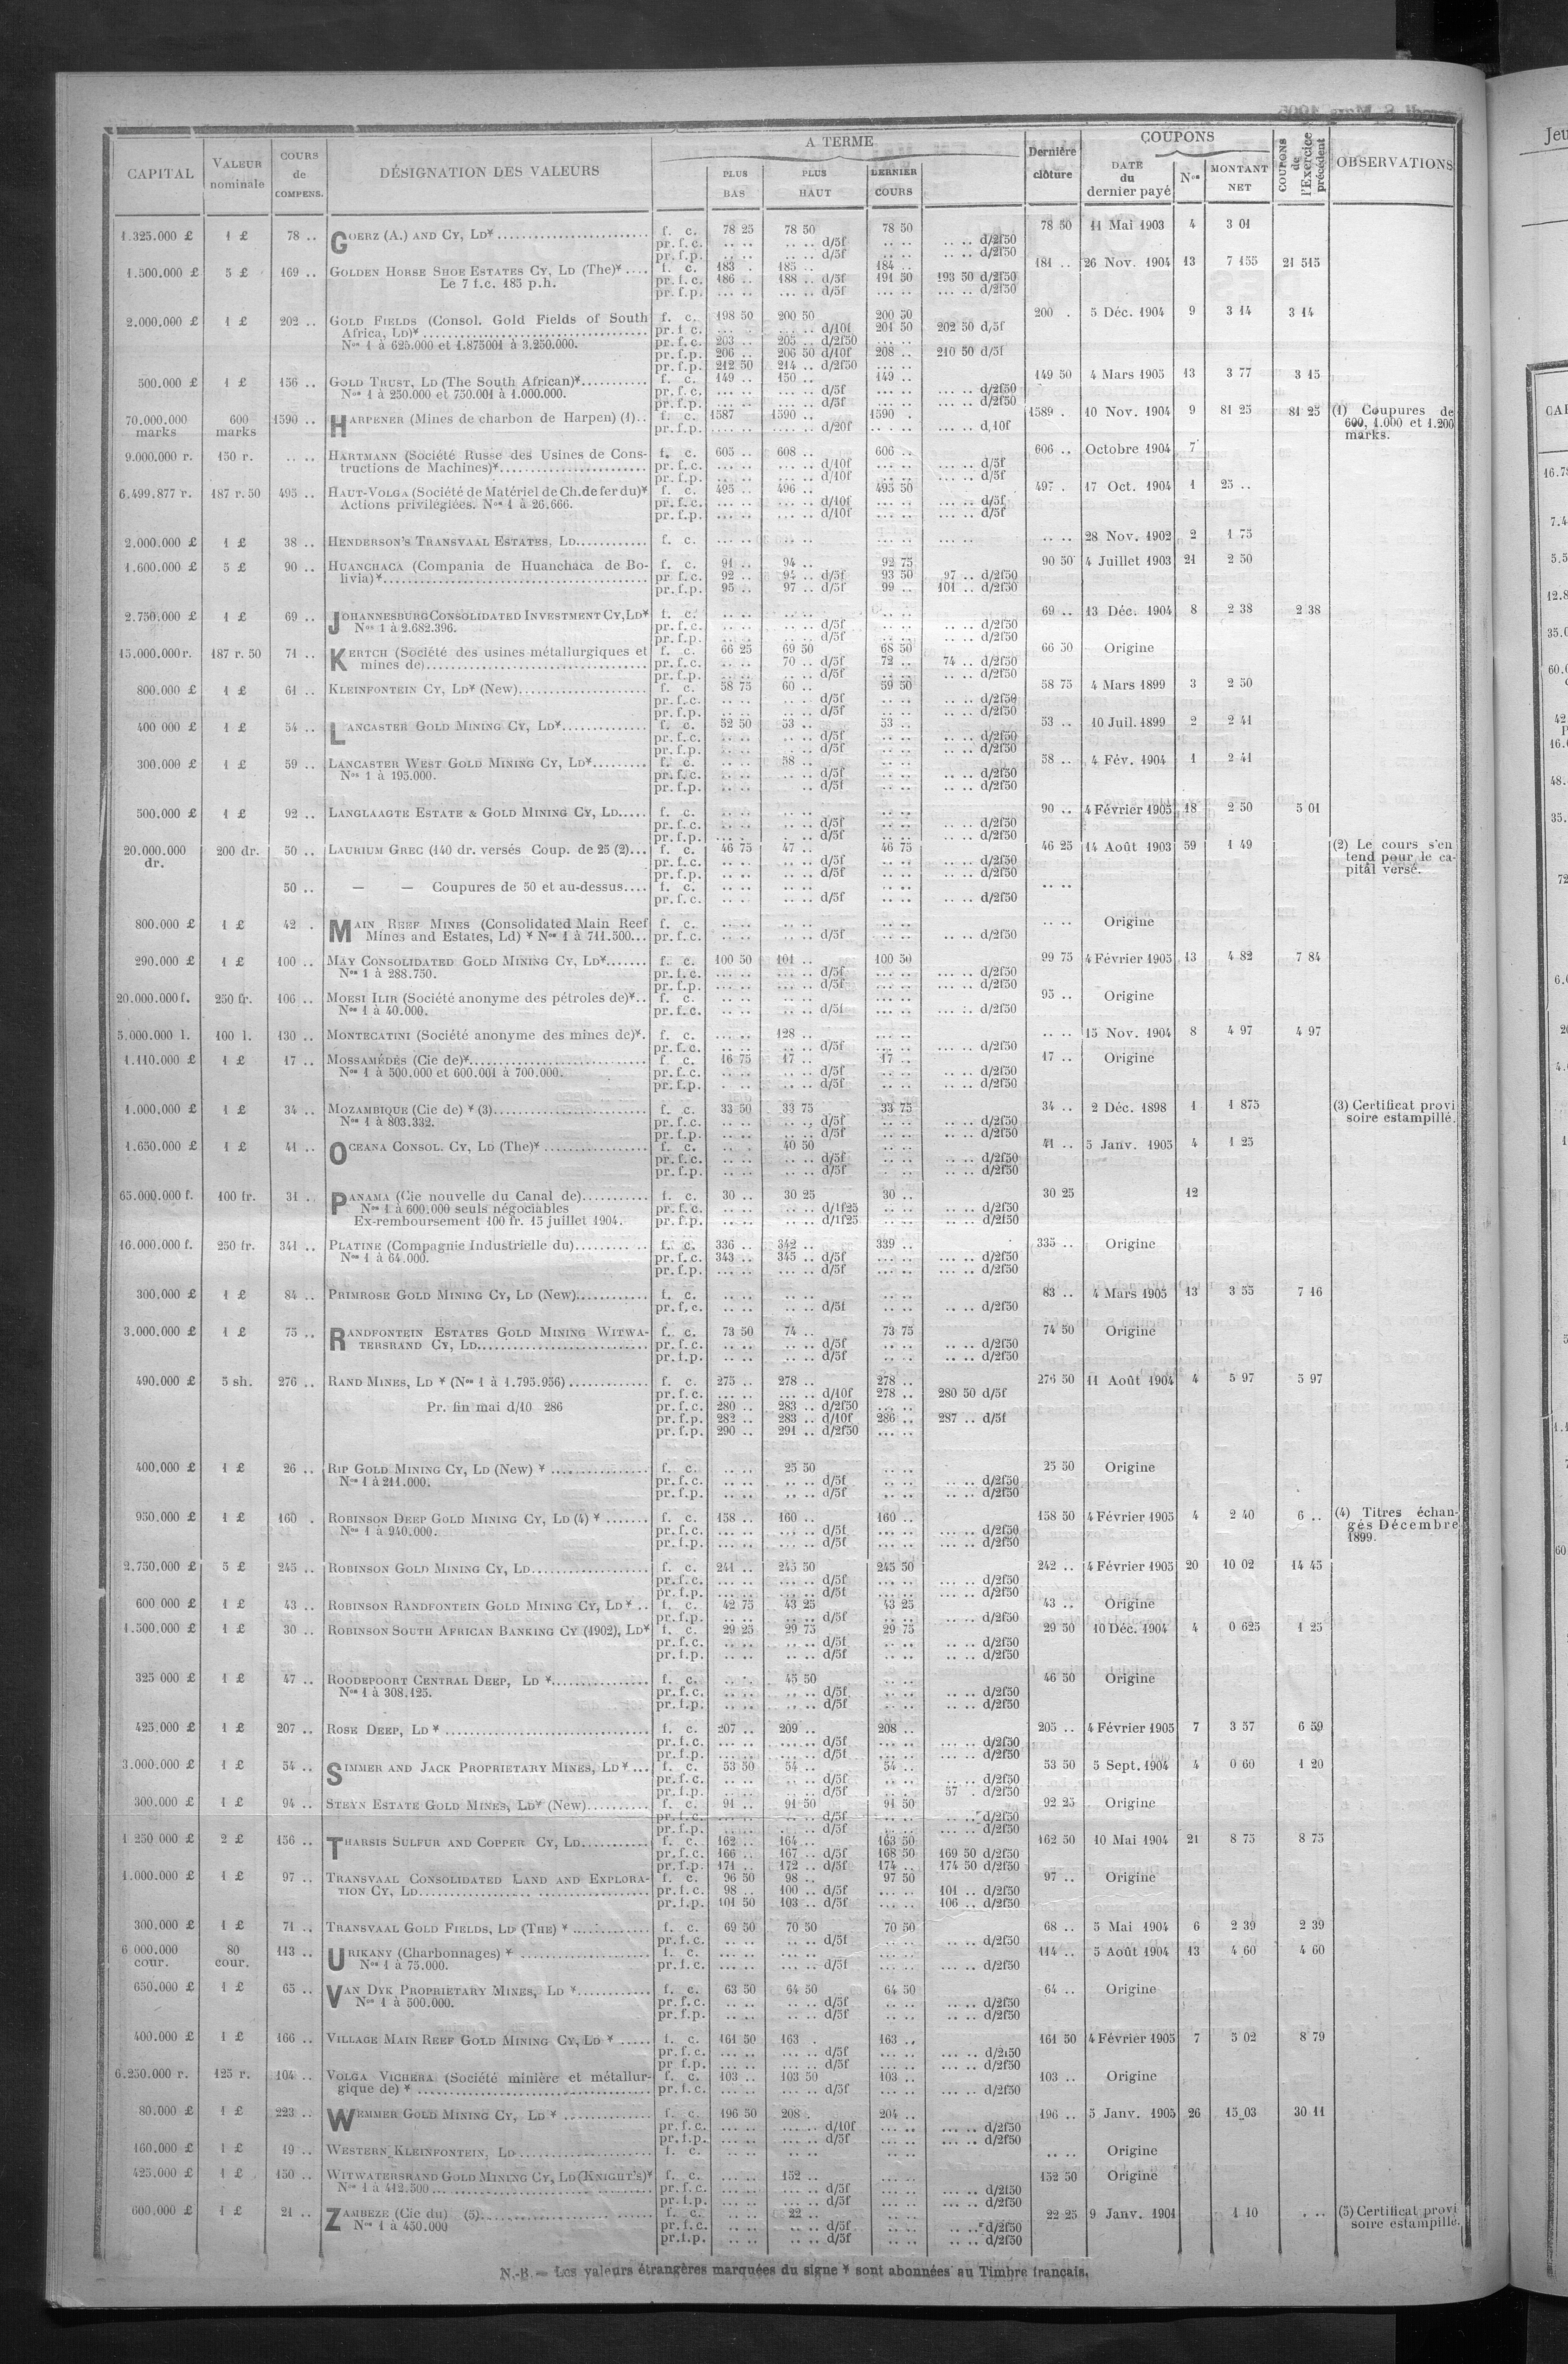 CAPITAL | VALEUR nominale | COURS de COMPENS. | DÉSIGNATION DES VALEURS | A TERME | PLUS BAS | PLUS HAUT | DERNIER COURS | Dernière clôture | COUPONS | DATE du dernier payé | Nos | MONTANT NET | COUPONS de l'Exercice précédent | OBSERVATIONS
1.325.000 £ 1 £ 78 .. GOERZ (A.) AND CY, LD* f. c. 78 25 78 50 78 50 78 50 11 Mai 1903 4 3 01
pr. f. c. .. .. .. .. d/5f .. .. .. .. d/2f50
pr. f. p. .. .. .. .. d/5f .. .. .. .. d/2f50
1.500.000 £ 5 £ 169 .. GOLDEN HORSE SHOE ESTATES CY, LD (The)* f. c. 183 . 185 .. 184 .. 181 .. 26 Nov. 1904 13 7 155 21 515
Le 7 f.c. 185 p.h. pr. f. c. 186 .. 188 .. d/5f 191 50 193 50 d/2f50
pr. f. p. ... .. ... .. d/5f ... .. ... .. d/2f50
2.000.000 £ 1 £ 202 .. GOLD FIELDS (Consol. Gold Fields of South f. c. 198 50 200 50 200 50 200 . 5 Déc. 1904 9 3 14 3 14
Africa, LD)* pr. f. c. ... .. ... .. d/10f 201 50 202 50 d/5f
Nos 1 à 625.000 et 1.875001 à 3.250.000. pr. f. c. 203 .. 205 .. d/2f50 ... ..
pr. f. p. 206 .. 206 50 d/10f 208 .. 210 50 d/5f
pr. f. p. 212 50 214 .. d/2f50 ... ..
500.000 £ 1 £ 156 .. GOLD TRUST, LD (The South African)* f. c. 149 .. 150 .. 149 .. 149 50 4 Mars 1905 13 3 77 3 15
Nos 1 à 250.000 et 750.001 à 1.000.000. pr. f. c. ... .. ... .. d/5f ... .. ... .. d/2f50
pr. f. p. ... .. ... .. d/5f ... .. ... .. d/2f50
70.000.000 marks 600 marks 1590 .. HARPENER (Mines de charbon de Harpen) (1).. f. c. 1587 1590 .. 1590 . 1589 . 10 Nov. 1904 9 81 25 81 25 (1) Coupures de 600, 1.000 et 1.200 marks.
pr. f. p. .... .. .. .. d/20f .. .. ... .. d/10f
9.000.000 r. 150 r. .. .. HARTMANN (Société Russe des Usines de Cons- f. c. 605 .. 608 .. 606 .. 606 .. Octobre 1904 7
tructions de Machines)* pr. f. c. ... .. ... .. d/10f ... .. ... .. d/5f
pr. f. p. ... .. ... .. d/10f ... .. ... .. d/5f
6.499.877 r. 187 r. 50 495 .. HAUT-VOLGA (Société de Matériel de Ch. de fer du)* f. c. 495 .. 496 .. 495 50 497 . 17 Oct. 1904 1 25 ..
Actions privilégiées. Nos 1 à 26.666. pr. f. c. ... .. ... .. d/10f ... .. ... .. d/5f
pr. f. p. ... .. ... .. d/10f ... .. ... .. d/5f
2.000.000 £ 1 £ 38 .. HENDERSON'S TRANSVAAL ESTATES, LD f. c. .. .. .. .. .. .. .. .. .. .. 28 Nov. 1902 2 1 75
1.600.000 £ 5 £ 90 .. HUANCHACA (Compania de Huanchaca de Bo- f. c. 91 .. 94 .. 92 75 90 50 4 Juillet 1903 21 2 50
livia)* pr. f. c. 92 .. 94 .. d/5f 93 50 97 .. d/2f50
pr. f. p. 95 .. 97 .. d/5f 99 .. 101 .. d/2f50
2.750.000 £ 1 £ 69 .. JOHANNESBURG CONSOLIDATED INVESTMENT CY, LD* f. c. .. .. .. .. .. .. 69 .. 13 Déc. 1904 8 2 38 2 38
Nos 1 à 2.682.396. pr. f. c. .. .. .. .. d/5f .. .. .. .. d/2f50
pr. f. p. .. .. .. .. d/5f .. .. .. .. d/2f50
15.000.000 r. 187 r. 50 71 .. KERTCH (Société des usines métallurgiques et f. c. 66 25 69 50 68 50 66 50 Origine
mines de) pr. f. c. .. .. 70 .. d/5f 72 .. 74 .. d/2f50
pr. f. p. .. .. .. .. d/5f .. .. .. .. d/2f50
800.000 £ 1 £ 61 .. KLEINFONTEIN CY, LD* (New) f. c. 58 75 60 .. 59 50 58 75 4 Mars 1899 3 2 50
pr. f. c. .. .. .. .. d/5f .. .. .. .. d/2f50
pr. f. p. .. .. .. .. d/5f .. .. .. .. d/2f50
400 000 £ 1 £ 54 .. LANCASTER GOLD MINING CY, LD* f. c. 52 50 53 .. 53 .. 53 .. 10 Juil. 1899 2 2 41
pr. f. c. .. .. .. .. d/5f .. .. .. .. d/2f50
pr. f. p. .. .. .. .. d/5f .. .. .. .. d/2f50
300.000 £ 1 £ 59 .. LANCASTER WEST GOLD MINING CY, LD* f. c. .. .. 58 .. .. .. 58 .. 4 Fév. 1904 1 2 41
Nos 1 à 195.000. pr. f. c. .. .. .. .. d/5f .. .. .. .. d/2f50
pr. f. p. .. .. .. .. d/5f .. .. .. .. d/2f50
500.000 £ 1 £ 92 .. LANGLAAGTE ESTATE & GOLD MINING CY, LD f. c. .. .. .. .. .. .. 90 .. 4 Février 1905 18 2 50 5 01
pr. f. c. .. .. .. .. d/5f .. .. .. .. d/2f50
pr. f. p. .. .. .. .. d/5f .. .. .. .. d/2f50
20.000.000 dr. 200 dr. 50 .. LAURIUM GREC (140 dr. versés Coup. de 25 (2)... f. c. 46 75 47 .. 46 75 46 25 14 Août 1903 59 1 49 (2) Le cours s'en tend pour le ca- pital versé.
pr. f. c. .. .. .. .. d/5f .. .. .. .. d/2f50
pr. f. p. .. .. .. .. d/5f .. .. .. .. d/2f50
50 .. — — Coupures de 50 et au-dessus.... f. c. .. .. .. .. .. .. .. ..
pr. f. c. .. .. .. .. d/5f .. .. .. .. d/2f50
800.000 £ 1 £ 42 . MAIN REEF MINES (Consolidated Main Reef f. c. .. .. .. .. .. .. .. .. Origine
Mines and Estates, Ld) * Nos 1 à 711.500... pr. f. c. .. .. .. .. d/5f .. .. .. .. d/2f50
290.000 £ 1 £ 100 .. MAY CONSOLIDATED GOLD MINING CY, LD* f. c. 100 50 101 .. 100 50 99 75 4 Février 1905 13 4 82 7 84
Nos 1 à 288.750. pr. f. c. ... .. ... .. d/5f ... .. ... .. d/2f50
pr. f. p. ... .. ... .. d/5f ... .. ... .. d/2f50
20.000.000 f. 250 fr. 106 .. MOESI ILIR (Société anonyme des pétroles de)*.. f. c. .. .. .. .. .. .. 95 .. Origine
Nos 1 à 40.000. pr. f. c. .. .. .. .. d/5f .. .. ... .. d/2f50
5.000.000 l. 100 l. 130 .. MONTECATINI (Société anonyme des mines de)*. f. c. ... .. 128 .. ... .. .. .. 15 Nov. 1904 8 4 97 4 97
pr. f. c. .. .. .. .. d/5f ... .. ... .. d/2f50
1.110.000 £ 1 £ 17 .. MOSSAMÉDÈS (Cie de)* f. c. 16 75 17 .. 17 .. 17 .. Origine
Nos 1 à 500.000 et 600.001 à 700.000. pr. f. c. .. .. .. .. d/5f .. .. .. .. d/2f50
pr. f. p. .. .. .. .. d/5f .. .. .. .. d/2f50
1.000.000 £ 1 £ 34 .. MOZAMBIQUE (Cie de) * (3) f. c. 33 50 33 75 33 75 34 .. 2 Déc. 1898 1 1 875 (3) Certificat provi soire estampillé.
Nos 1 à 803.332. pr. f. c. .. .. .. .. d/5f .. .. .. .. d/2f50
pr. f. p. .. .. .. .. d/5f .. .. .. .. d/2f50
1.650.000 £ 1 £ 41 .. OCEANA CONSOL. CY, LD (The)* f. c. .. . 40 50 .. .. 41 .. 5 Janv. 1905 4 1 25
pr. f. c. .. .. .. .. d/5f .. .. .. .. d/2f50
pr. f. p. .. .. .. .. d/5f .. .. .. .. d/2f50
65.000.000 f. 100 fr. 31 .. PANAMA (Cie nouvelle du Canal de) f. c. 30 .. 30 25 30 .. 30 25 12
Nos 1 à 600.000 seuls négociables pr. f. c. .. .. .. .. d/1f25 .. .. .. .. d/2f50
Ex-remboursement 100 fr. 15 juillet 1904. pr. f. p. .. .. .. .. d/1f25 .. .. .. .. d/2f50
16.000.000 f. 250 fr. 341 .. PLATINE (Compagnie Industrielle du) f. c. 336 .. 342 .. 339 .. 335 .. Origine
Nos 1 à 64.000. pr. f. c. 343 .. 345 .. d/5f ... .. ... .. d/2f50
pr. f. p. ... .. ... .. d/5f ... .. ... .. d/2f50
300.000 £ 1 £ 84 .. PRIMROSE GOLD MINING CY, LD (New) f. c. .. .. .. .. .. .. 83 .. 4 Mars 1905 13 3 55 7 16
pr. f. c. .. .. .. .. d/5f .. .. .. .. d/2f50
3.000.000 £ 1 £ 75 .. RANDFONTEIN ESTATES GOLD MINING WITWA- f. c. 73 50 74 .. 73 75 74 50 Origine
TERSRAND CY, LD pr. f. c. .. .. .. .. d/5f .. .. .. .. d/2f50
pr. f. p. .. .. .. .. d/5f .. .. .. .. d/2f50
490.000 £ 5 sh. 276 .. RAND MINES, LD * (Nos 1 à 1.795.956) f. c. 275 .. 278 .. 278 .. 276 50 11 Août 1904 4 5 97 5 97
pr. f. c. ... .. ... .. d/10f 278 .. 280 50 d/5f
Pr. fin mai d/10 286 pr. f. c. 280 .. 283 .. d/2f50 ... ..
pr. f. p. 282 .. 283 .. d/10f 286 .. 287 .. d/5f
pr. f. p. 290 .. 291 .. d/2f50 ... ..
400.000 £ 1 £ 26 .. RIP GOLD MINING CY, LD (New) * f. c. .. .. 25 50 .. .. 25 50 Origine
Nos 1 à 211.000. pr. f. c. .. .. .. .. d/5f .. .. .. .. d/2f50
pr. f. p. .. .. .. .. d/5f .. .. .. .. d/2f50
950.000 £ 1 £ 160 . ROBINSON DEEP GOLD MINING CY, LD (4) * f. c. 158 .. 160 .. 160 .. 158 50 4 Février 1905 4 2 40 6 .. (4) Titres échan- gés Décembre 1899.
Nos 1 à 940.000. pr. f. c. ... .. ... .. d/5f ... .. ... .. d/2f50
pr. f. p. ... .. ... .. d/5f ... .. ... .. d/2f50
2.750.000 £ 5 £ 245 .. ROBINSON GOLD MINING CY, LD f. c. 241 .. 245 50 245 50 242 .. 4 Février 1905 20 10 02 14 45
pr. f. c. ... .. ... .. d/5f ... .. ... .. d/2f50
pr. f. p. ... .. ... .. d/5f ... .. ... .. d/2f50
600 000 £ 1 £ 43 .. ROBINSON RANDFONTEIN GOLD MINING CY, LD * .. f. c. 42 75 43 25 43 25 43 .. Origine
pr. f. p. .. .. .. .. d/5f .. .. .. .. d/2f50
1.500.000 £ 1 £ 30 .. ROBINSON SOUTH AFRICAN BANKING CY (1902), LD* f. c. 29 25 29 75 29 75 29 50 10 Déc. 1904 4 0 625 1 25
pr. f. c. .. .. .. .. d/5f .. .. .. .. d/2f50
pr. f. p. .. .. .. .. d/5f .. .. .. .. d/2f50
325 000 £ 1 £ 47 .. ROODEPOORT CENTRAL DEEP, LD * f. c. .. .. 45 50 .. .. 46 50 Origine
Nos 1 à 308.125. pr. f. c. .. .. .. .. d/5f .. .. .. .. d/2f50
pr. f. p. .. .. .. .. d/5f .. .. .. .. d/2f50
425.000 £ 1 £ 207 .. ROSE DEEP, LD * f. c. 207 .. 209 .. 208 .. 205 .. 4 Février 1905 7 3 57 6 59
pr. f. c. ... .. ... .. d/5f ... .. ... .. d/2f50
pr. f. p. ... .. ... .. d/5f ... .. ... .. d/2f50
3.000.000 £ 1 £ 54 .. SIMMER AND JACK PROPRIETARY MINES, LD * ... f. c. 53 50 54 .. 54 .. 53 50 5 Sept. 1904 4 0 60 1 20
pr. f. c. .. .. .. .. d/5f .. .. .. .. d/2f50
pr. f. p. .. .. .. .. d/5f .. .. 57 . d/2f50
300.000 £ 1 £ 94 .. STEYN ESTATE GOLD MINES, LD* (New) f. c. 91 .. 91 50 91 50 92 25 Origine
pr. f. c. .. .. .. .. d/5f .. .. .. .. d/2f50
pr. f. p. .. .. .. .. d/5f .. .. .. .. d/2f50
1 250 000 £ 2 £ 156 .. THARSIS SULFUR AND COPPER CY, LD f. c. 162 .. 164 .. 163 50 162 50 10 Mai 1904 21 8 75 8 75
pr. f. c. 166 .. 167 .. d/5f 168 50 169 50 d/2f50
pr. f. p. 171 .. 172 .. d/5f 174 .. 174 50 d/2f50
1.000.000 £ 1 £ 97 .. TRANSVAAL CONSOLIDATED LAND AND EXPLORA- f. c. 96 50 98 .. 97 50 97 .. Origine
TION CY, LD pr. f. c. 98 .. 100 .. d/5f ... .. 101 .. d/2f50
pr. f. p. 101 50 103 .. d/5f ... .. 106 .. d/2f50
300.000 £ 1 £ 71 .. TRANSVAAL GOLD FIELDS, LD (THE) * f. c. 69 50 70 50 70 50 68 .. 5 Mai 1904 6 2 39 2 39
pr. f. c. .. .. .. .. d/5f .. .. .. .. d/2f50
6.000.000 cour. 80 cour. 113 .. URIKANY (Charbonnages) * f. c. ... .. ... .. ... .. 114 .. 5 Août 1904 13 4 60 4 60
Nos 1 à 75.000. pr. f. c. ... .. ... .. d/5f ... .. ... .. d/2f50
650.000 £ 1 £ 65 .. VAN DYK PROPRIETARY MINES, LD * f. c. 63 50 64 50 64 50 64 .. Origine
Nos 1 à 500.000. pr. f. c. .. .. .. .. d/5f .. .. .. .. d/2f50
pr. f. p. .. .. .. .. d/5f .. .. .. .. d/2f50
400.000 £ 1 £ 166 .. VILLAGE MAIN REEF GOLD MINING CY, LD * f. c. 161 50 163 . 163 .. 161 50 4 Février 1905 7 5 02 8 79
pr. f. c. ... .. ... .. d/5f ... .. ... .. d/2f50
pr f. p. ... .. ... .. d/5f ... .. ... .. d/2f50
6.250.000 r. 125 r. 104 .. VOLGA VICHERA (Société minière et métallur- f. c. 103 .. 103 50 103 .. 103 .. Origine
gique de) * pr. f. c. ... .. ... .. d/5f ... .. ... .. d/2f50
80.000 £ 1 £ 223 .. WEMMER GOLD MINING CY, LD * f. c. 196 50 208 . 204 .. 196 .. 5 Janv. 1905 26 15 03 30 11
pr. f. c. ... .. ... .. d/10f ... .. ... .. d/2f50
pr. f. p. ... .. ... .. d/5f ... .. ... .. d/2f50
160.000 £ 1 £ 19 .. WESTERN KLEINFONTEIN, LD f. c. .. .. .. .. .. .. .. .. Origine
425.000 £ 1 £ 150 .. WITWATERSRAND GOLD MINING CY, LD (KNIGHT'S)* f. c. ... .. 152 .. ... .. 152 50 Origine
Nos 1 à 412.500 pr. f. c. ... .. ... .. d/5f ... .. ... .. d/2f50
pr. f. p. ... .. ... .. d/5f ... .. ... .. d/2f50
600.000 £ 1 £ 21 .. ZAMBÈZE (Cie du) (5) f. c. .. .. 22 .. .. .. 22 25 9 Janv. 1901 1 10 . .. (5) Certificat provi soire estampillé.
Nos 1 à 450.000 pr. f. c. .. .. .. .. d/5f .. .. .. .. d/2f50
pr. f. p. .. .. .. .. d/5f .. .. .. .. d/2f50
N.-B. — Les valeurs étrangères marquées du signe * sont abonnées au Timbre français.
Jeu